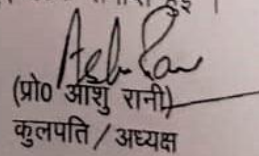 हुई ।
(प्रो0 आशु रानी)
कुलपति / अध्यक्ष